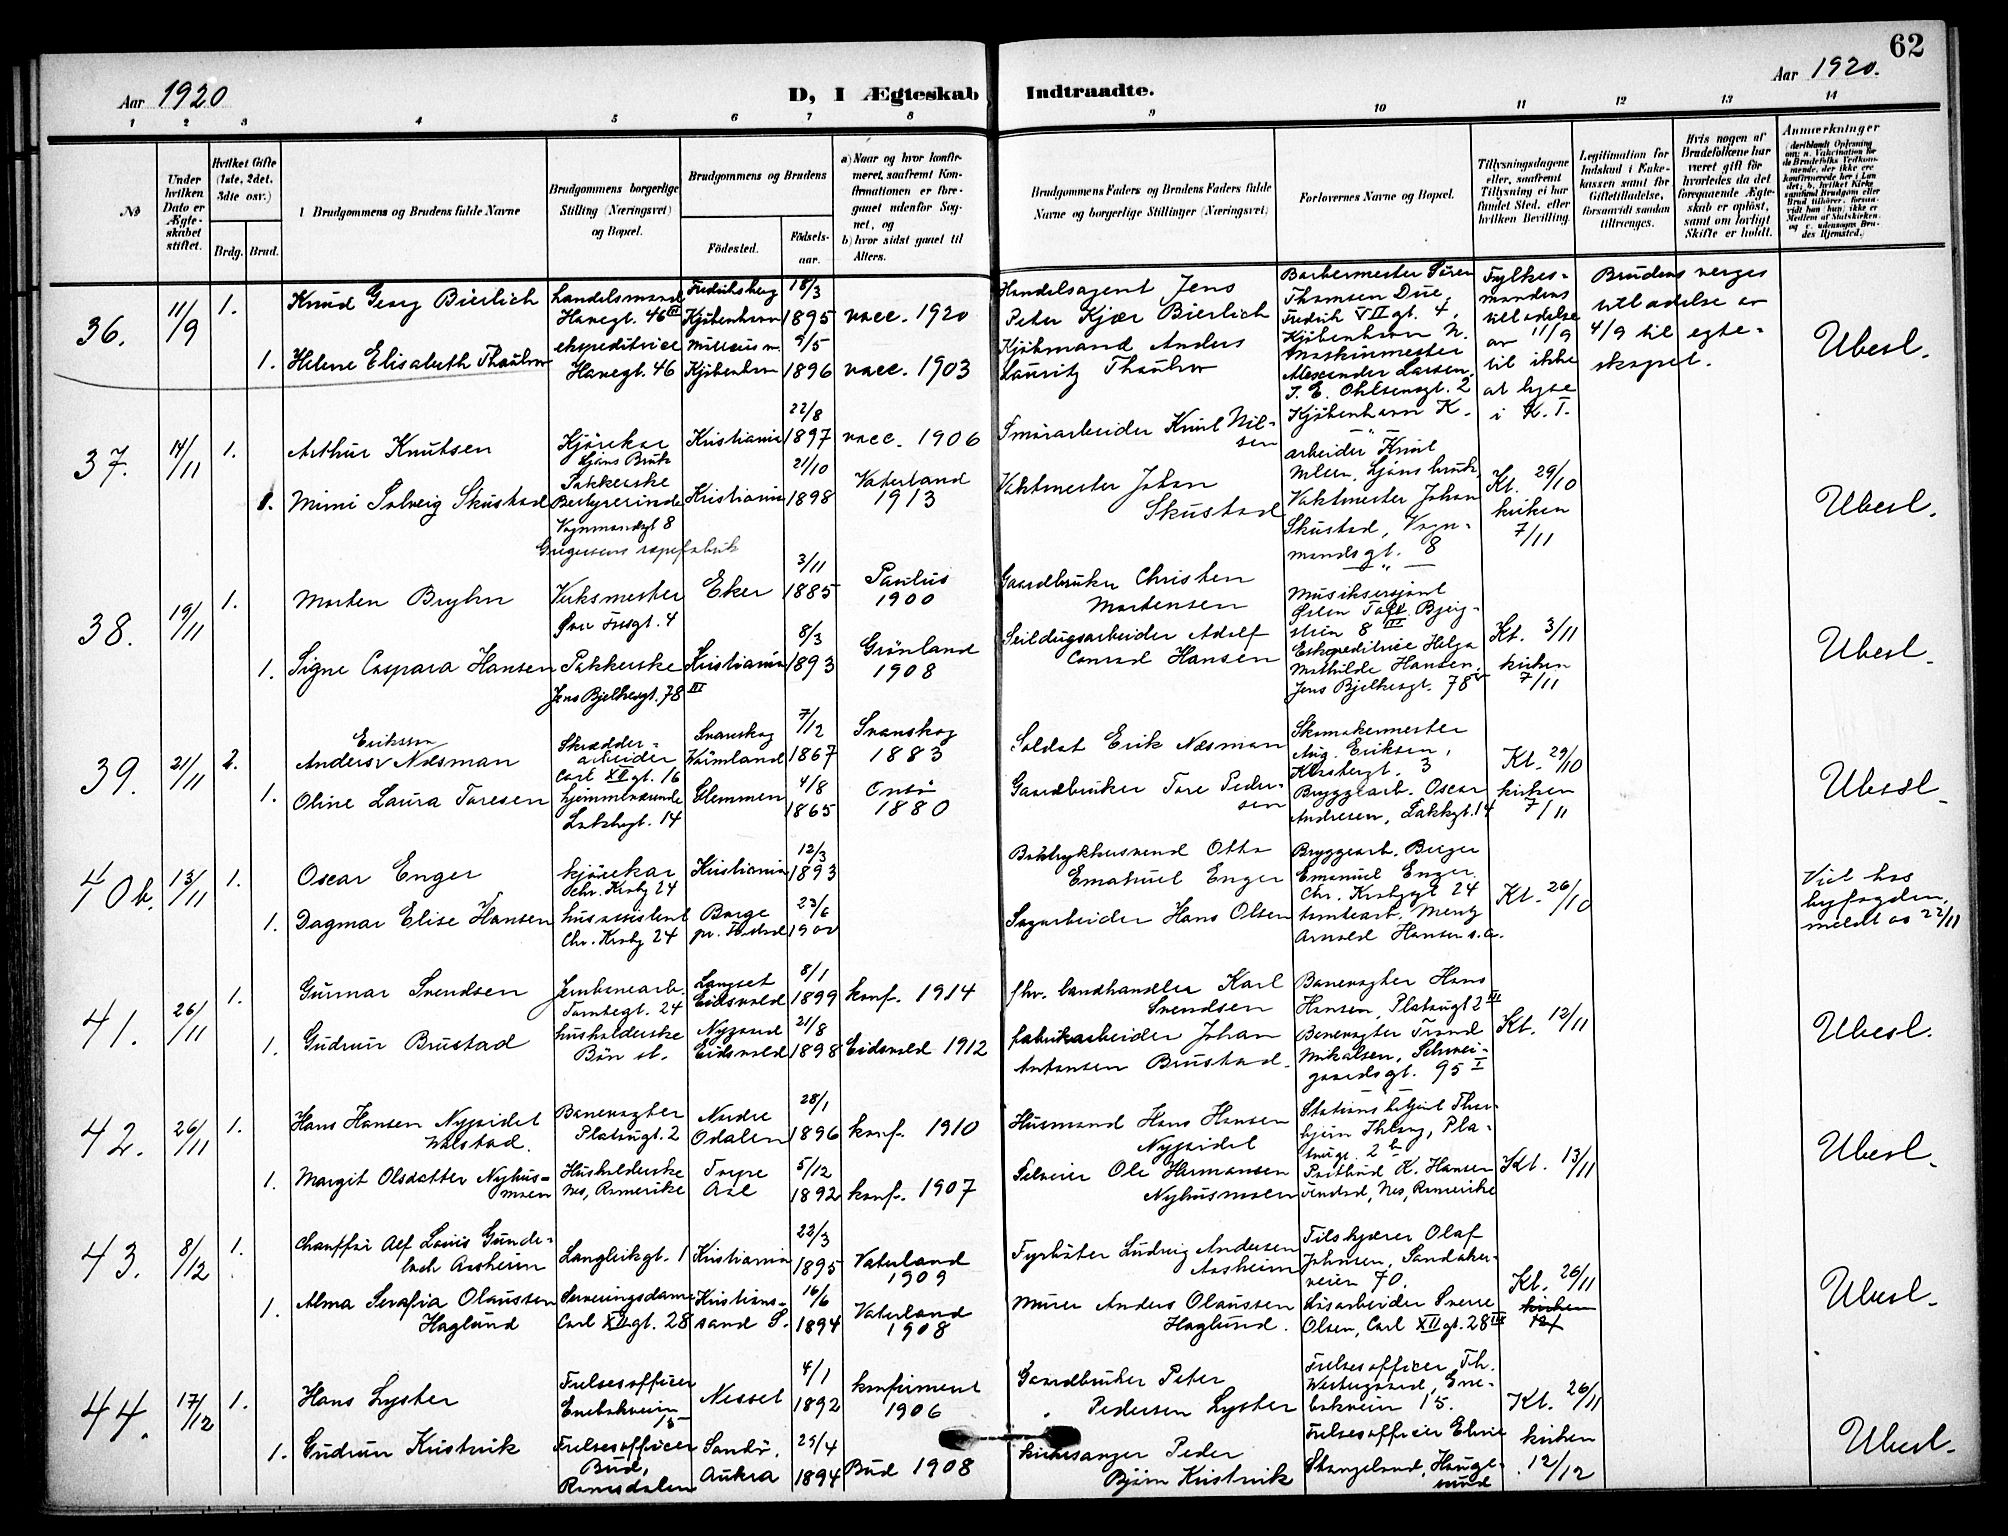 62
Aar 1920
D, I Ægteskab Indtraadte.
Aar 1920.
1 2 3 4 5 6 7 8 9 10 11 12 13 14
No
Under hvilken Dato er Ægteskabet stiftet.
Hvilket Gifte (1ste, 2det, 3dte osv.)
Brdg. Brud.
Brudgommens og Brudens fulde Navne
Brudgommens borgerlige Stilling (Næringsvei) og Bopæl.
Brudgommens og Brudens
Fødested.
Fødselsaar.
a) Naar og hvor konfirmeret, saafremt Konfirmationen er foregaaet udenfor Sognet, og
b) hvor sidst gaaet til Alters.
Brudgommens Faders og Brudens Faders fulde Navne og borgerlige Stillinger (Næringsvei)
Forlovernes Navne og Bopæl.
Tillysningsdagene eller, saafremt Tillysning ei har fundet Sted, efter hvilken Bevilling.
Legitimation for Indskud i Enkekassen samt for Giftetilladelse, forsaavidt saadan tiltrænges.
Hvis nogen af Brudefolkene har været gift før hvorledes da det foregaaende Ægteskab er opløst, samt om lovligt Skifte er holdt.
Anmærkninger
36. 11/9 1. Knud Georg Bierlich
Handelsmand Havegt. 46 III
Fredriksberg Kjøbenhavn
18/3 1895
vacc. 1920
Handelsagent Jens Peter Kjær Bierlich
Barbermester Sören Thomsen Due, Fredrik VII gt. 4, Kjöbenhavn N.
Fylkesmandens tilladelse av 11/9 til ikke at lyse i K. T.
Brudens verges tilladelse av 4/9 til egteskapet.
Ubesl.
1. Helene Elisabeth Thaulow
ekspeditrice Havegt. 46
Kjöbenhavn
9/5 1896
vacc. 1903
Kjöbmand Anders Lauritz Thaulow
Maskinmester Alexander Larsen, J. E. Ohlsensgt. 2 Kjöbenhavn K.
37. 14/11 1. Arthur Knutsen
Kjörekar Ljans Bruk
Kristiania
22/8 1897
vacc. 1906
Smörarbeider Knut Nilsen
arbeider Knut Ljansbruk
Kt. 29/10 kirken 7/11
Ubesl.
1. Mimi Solveig Skustad
Pakkerske Bestyrerinde Vognmandsgt 8
Gregersens sæpefabrik
Kristiania
21/10 1898
Vaterland 1913
Vaktmester Johan Skustad
Vaktmester Johan Skustad, Vognmandsgt. 8
38. 19/11 1. Morten Bryhn
Verksmester Fossgt. 4
Eker
3/11 1885
Paulus 1900
Gaardbruker Christen Mortensen
Musiksersjant
Kt. 3/11 kirken 7/11
Ubesl.
1. Signe Caspara Hansen
Pakkerske Jens Bjelkesgt. 78 III
Kristiania
8/3 1893
Grönland 1908
Seildugsarbeider Adolf Conrad Hansen
Ekspeditrice Helga Mathilde Hansen, Jens Bjelkesgt. 78
39. 21/11 2. Anders Eriksson Næsman
Skrædderarbeider Carl XII gt. 16
Svanskog Värmland
7/12 1867
Svanskog 1883
Soldat Erik Næsman
Skomakermester Aug. Eriksen, 3
Kt. 29/10 kirken 7/11
Ubesl.
1. Oline Laura Toresen
hjemmeværende Lakkegt. 14
Glemmen
4/8 1865
Onsö 1880
Gaardbruker Tore Pedersen
Bryggearb. Oscar Andresen, Lakkgt. 14
40 b. 13/11 1. Oscar Enger
kjörekar Chr. Krohg 24
Kristiania
12/3 1893
Boktrykkersvend Otto Emanuel Enger
Bryggearb. Birger Emanuel Enger. Chr. Krohgsgt 24
Kt. 26/10
Viet hos byfogden, meldt os 22/11
1. Dagmar Elise Hansen
husassistent Chr. Krohg 24
Borge
23/6 1900
Sagarbeider Hans Olsen
tomtearb. Mentz Arnold Hansen s. a.
41. 26/11 1. Gunnar Svendsen
Jernbanearb. Tomtegt. 24
Langset Eidsvold
8/1 1899
konf. 1914
fhv. landhandler Karl Svendsen
Banevogter Hans Hansen, Platougt 2 III
Kt. 12/11
Ubesl.
1. Gudrun Brustad
husholderske Bön st.
Nygaard Eidsvold
21/8 1898
Eidsvold 1912
fabrikarbeider Johan Antonsen Brustad.
Banevogter Trond Mikalsen, Schweigaardsgt. 95 I
42. 26/11 1. Hans Hansen Nygeidet Walstad.
Banevogter Platougt. 2
Nordre Odalen
28/1 1896
konf. 1910
Husmand Hans Hansen Nygeidet
Kt. 13/11
Ubesl.
1. Margit Olsdatter Nyhusmoen
Husholderske Nes, Romerike
Torpe Aal
5/12 1892
konf. 1907
Selveier Ole Hermansen Nyhusmoen
Postbud K. Hansen Nes, Romerike
43. 8/12 1. chauffør Alf Louis Gundelach Aasheim
Langleikgt. 1
Kristiania
22/3 1895
Vaterland 1909
Fyrböter Ludvig Andersen Aasheim
Filskjærer Olaf Johnsen, Sandakerveien 70.
Kt. 26/11
Ubesl.
1. Alma Serafia Olaussen Haglund
Serveringsdame Carl XII gt. 28
Kristianssand S.
16/6 1894
Vaterland 1908
Murer Anders Olaussen Haglund.
Lösarbeider Sverre Olsen, Carl XII gt. 28 III
44. 17/12 1. Hans Lyster
Frelsesofficer Enebakveien 15
Nesset
4/1 1892
konfirment 1906
Gaardbruker Peter Pedersen Lyster
Frelsesofficer Th. Westergaard, Enebakveien 15.
Kt. 26/11 kirken 12/12
Ubesl.
1. Gudrun Kristvik
Frelsesofficer Bud, Romsdalen
Sandö, Aukra
25/4 1894
Bud 1908
kirkesanger Peder Björn Kristvik
Frelsesofficer Stangeland, Haugesund